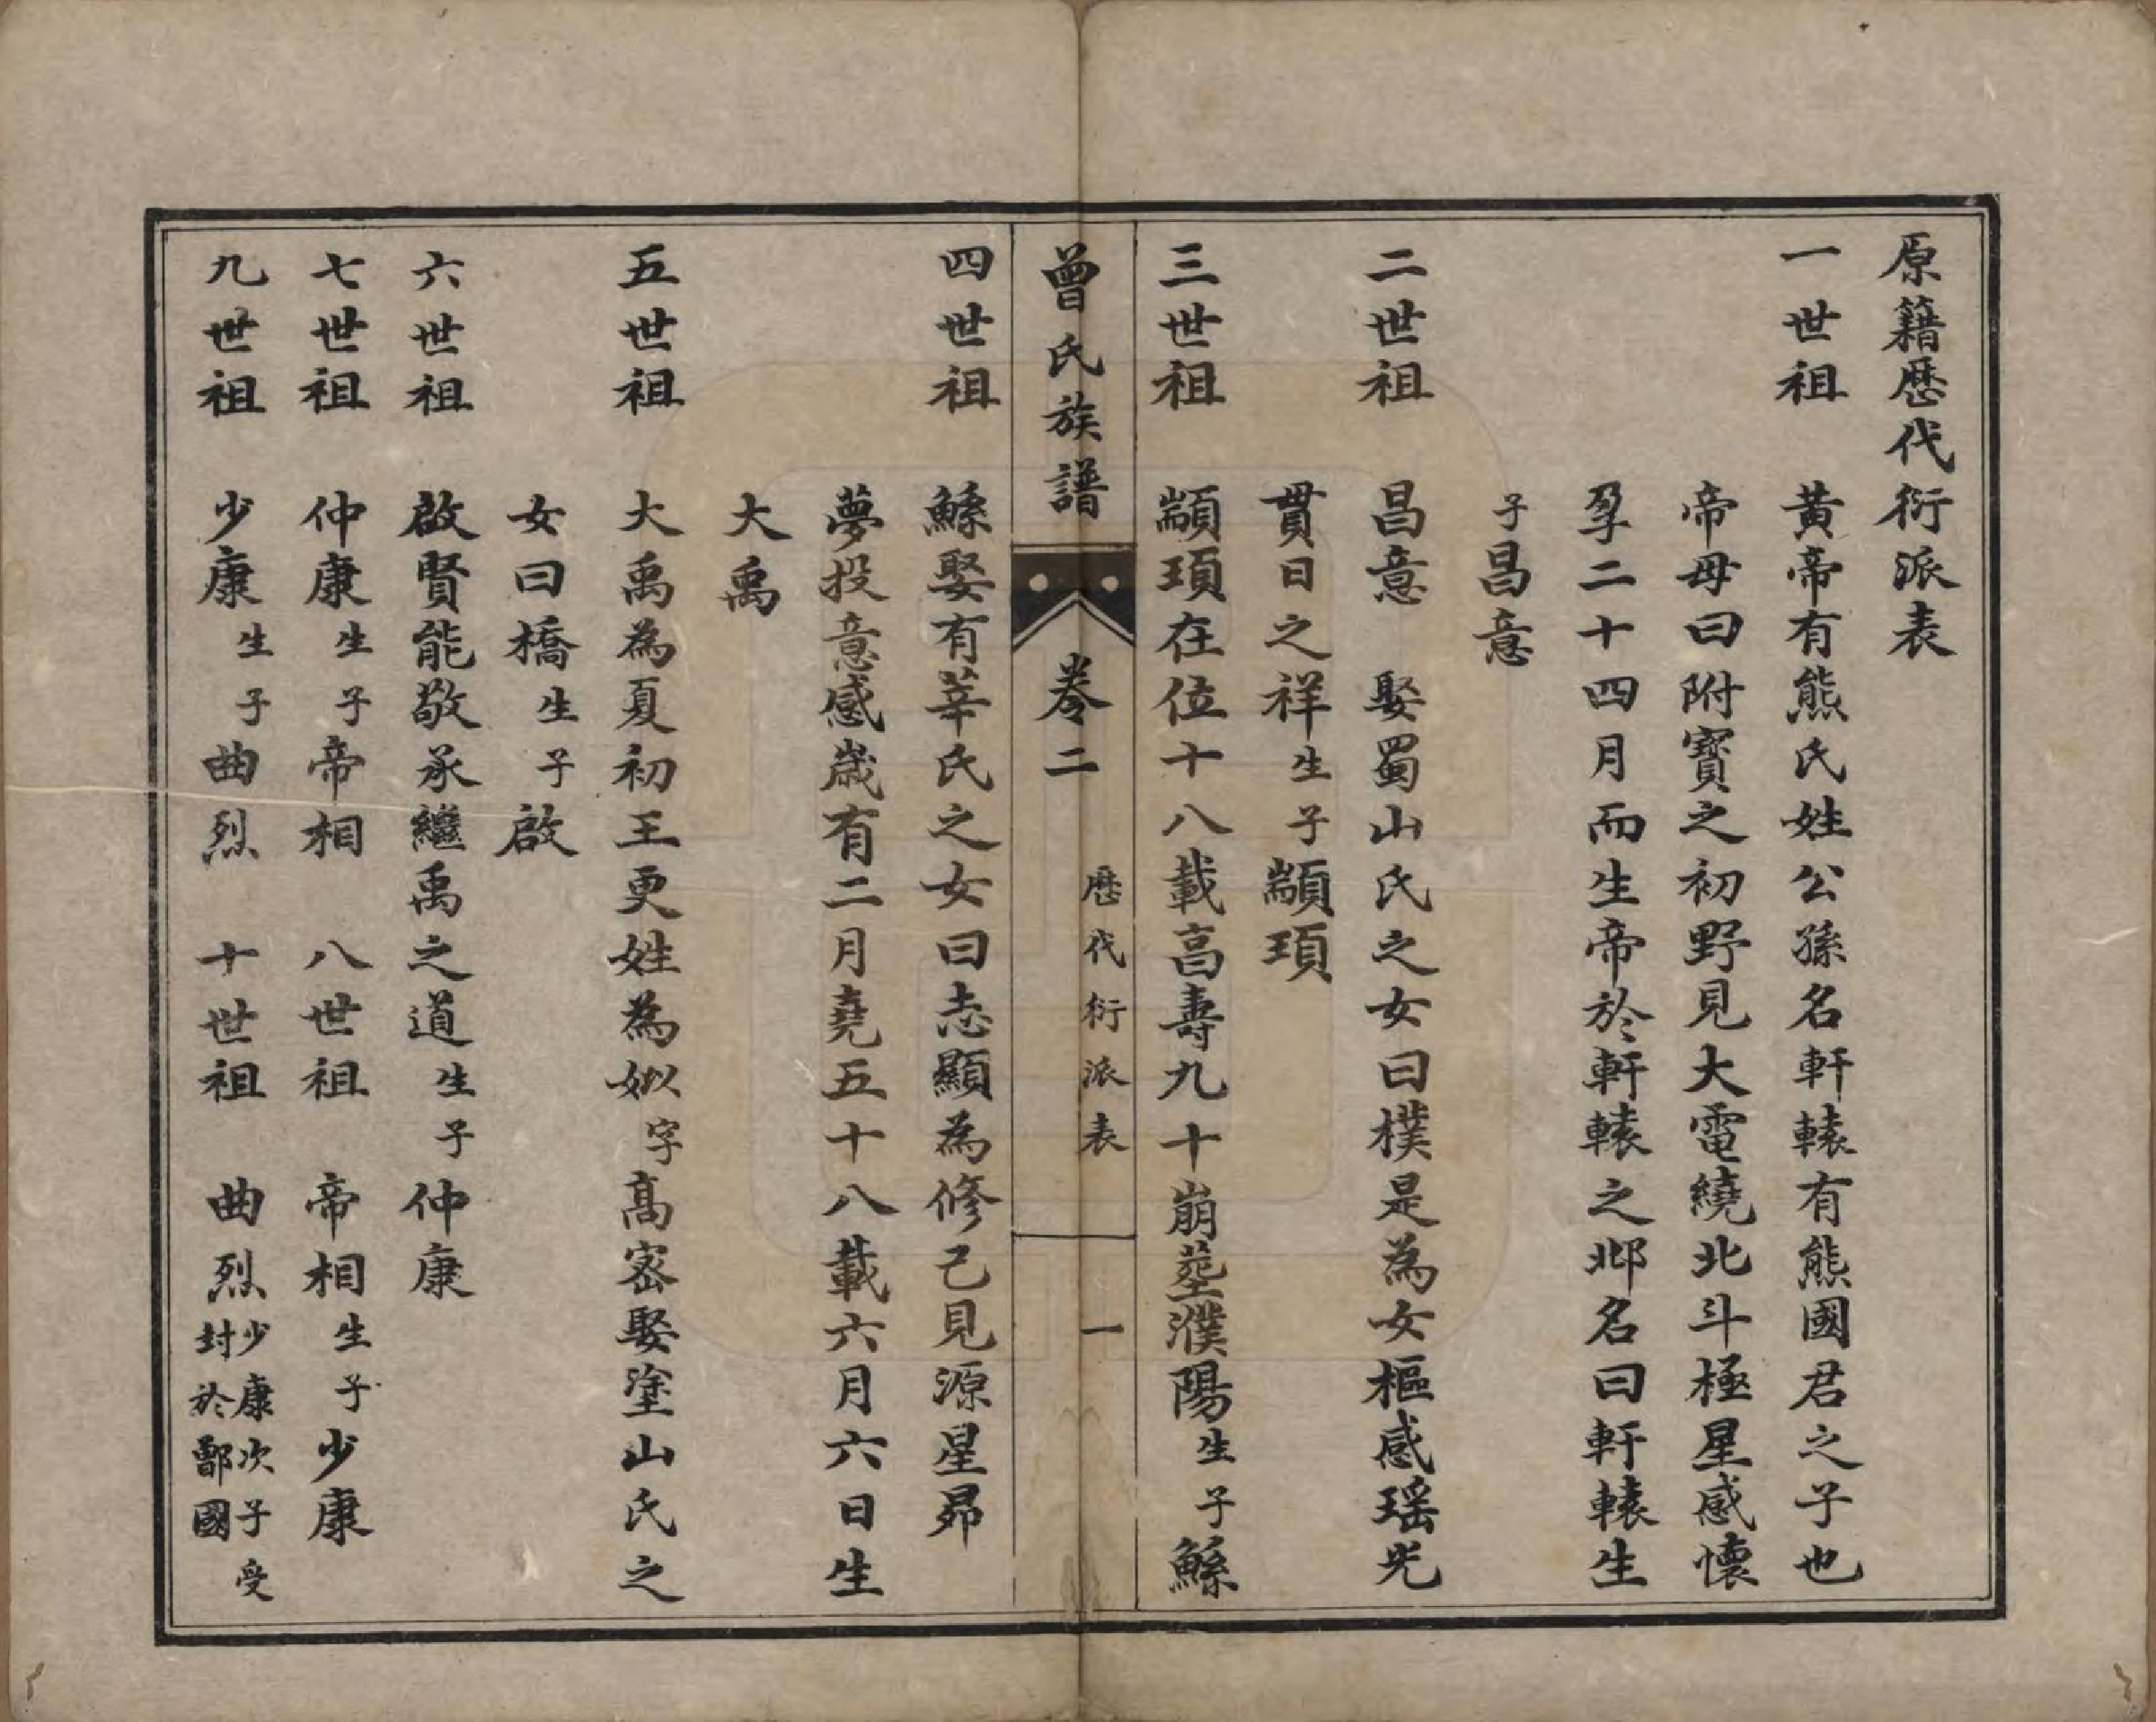 原籍歷代衍派表
一世祖　黃帝有熊氏姓公孫名軒轅有熊國君之子也
帝母曰附寶之初野見大電繞北斗極星感懷
孕二十四月而生帝於軒轅之邱名曰軒轅生
子昌意
二世祖　昌意　娶蜀山氏之女曰樸是為女樞感瑤光
貫日之祥生子顓頊
三世祖　顓頊在位十八載高壽九十崩塟濮陽生子鯀
曾氏族譜　卷二　歷代衍派表　一
四世祖　鯀娶有莘氏之女曰志顯為修己見源星昴
夢投意感歲有二月堯五十八載六月六日生
大禹
五世祖　大禹為夏初王更姓為姒字高密娶塗山氏之
女曰橋生子啟
六世祖　啟賢能敬承繼禹之道生子仲康
七世祖　仲康生子帝相　八世祖　帝相生子少康
九世祖　少康生子曲烈　十世祖　曲烈少康次子受封於鄫國